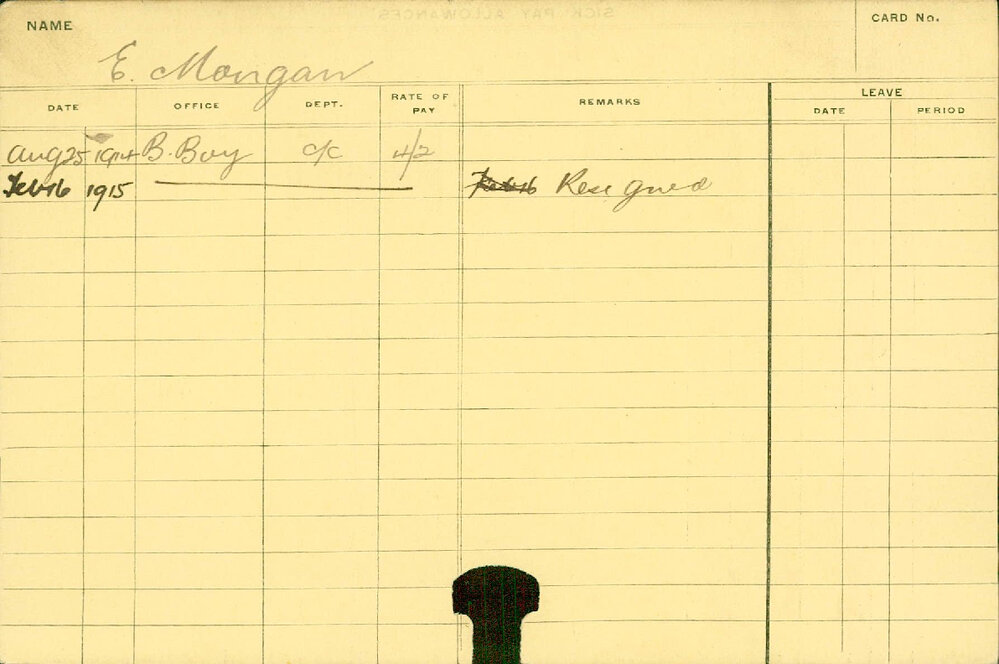 NAME
CARD No.
E. Morgan
DATE OFFICE DEPT. RATE OF PAY REMARKS LEAVE
DATE PERIOD
Aug 25 1914 B. Boy C/C 4/2
Feb 16 1915 Feb 16 Resigned